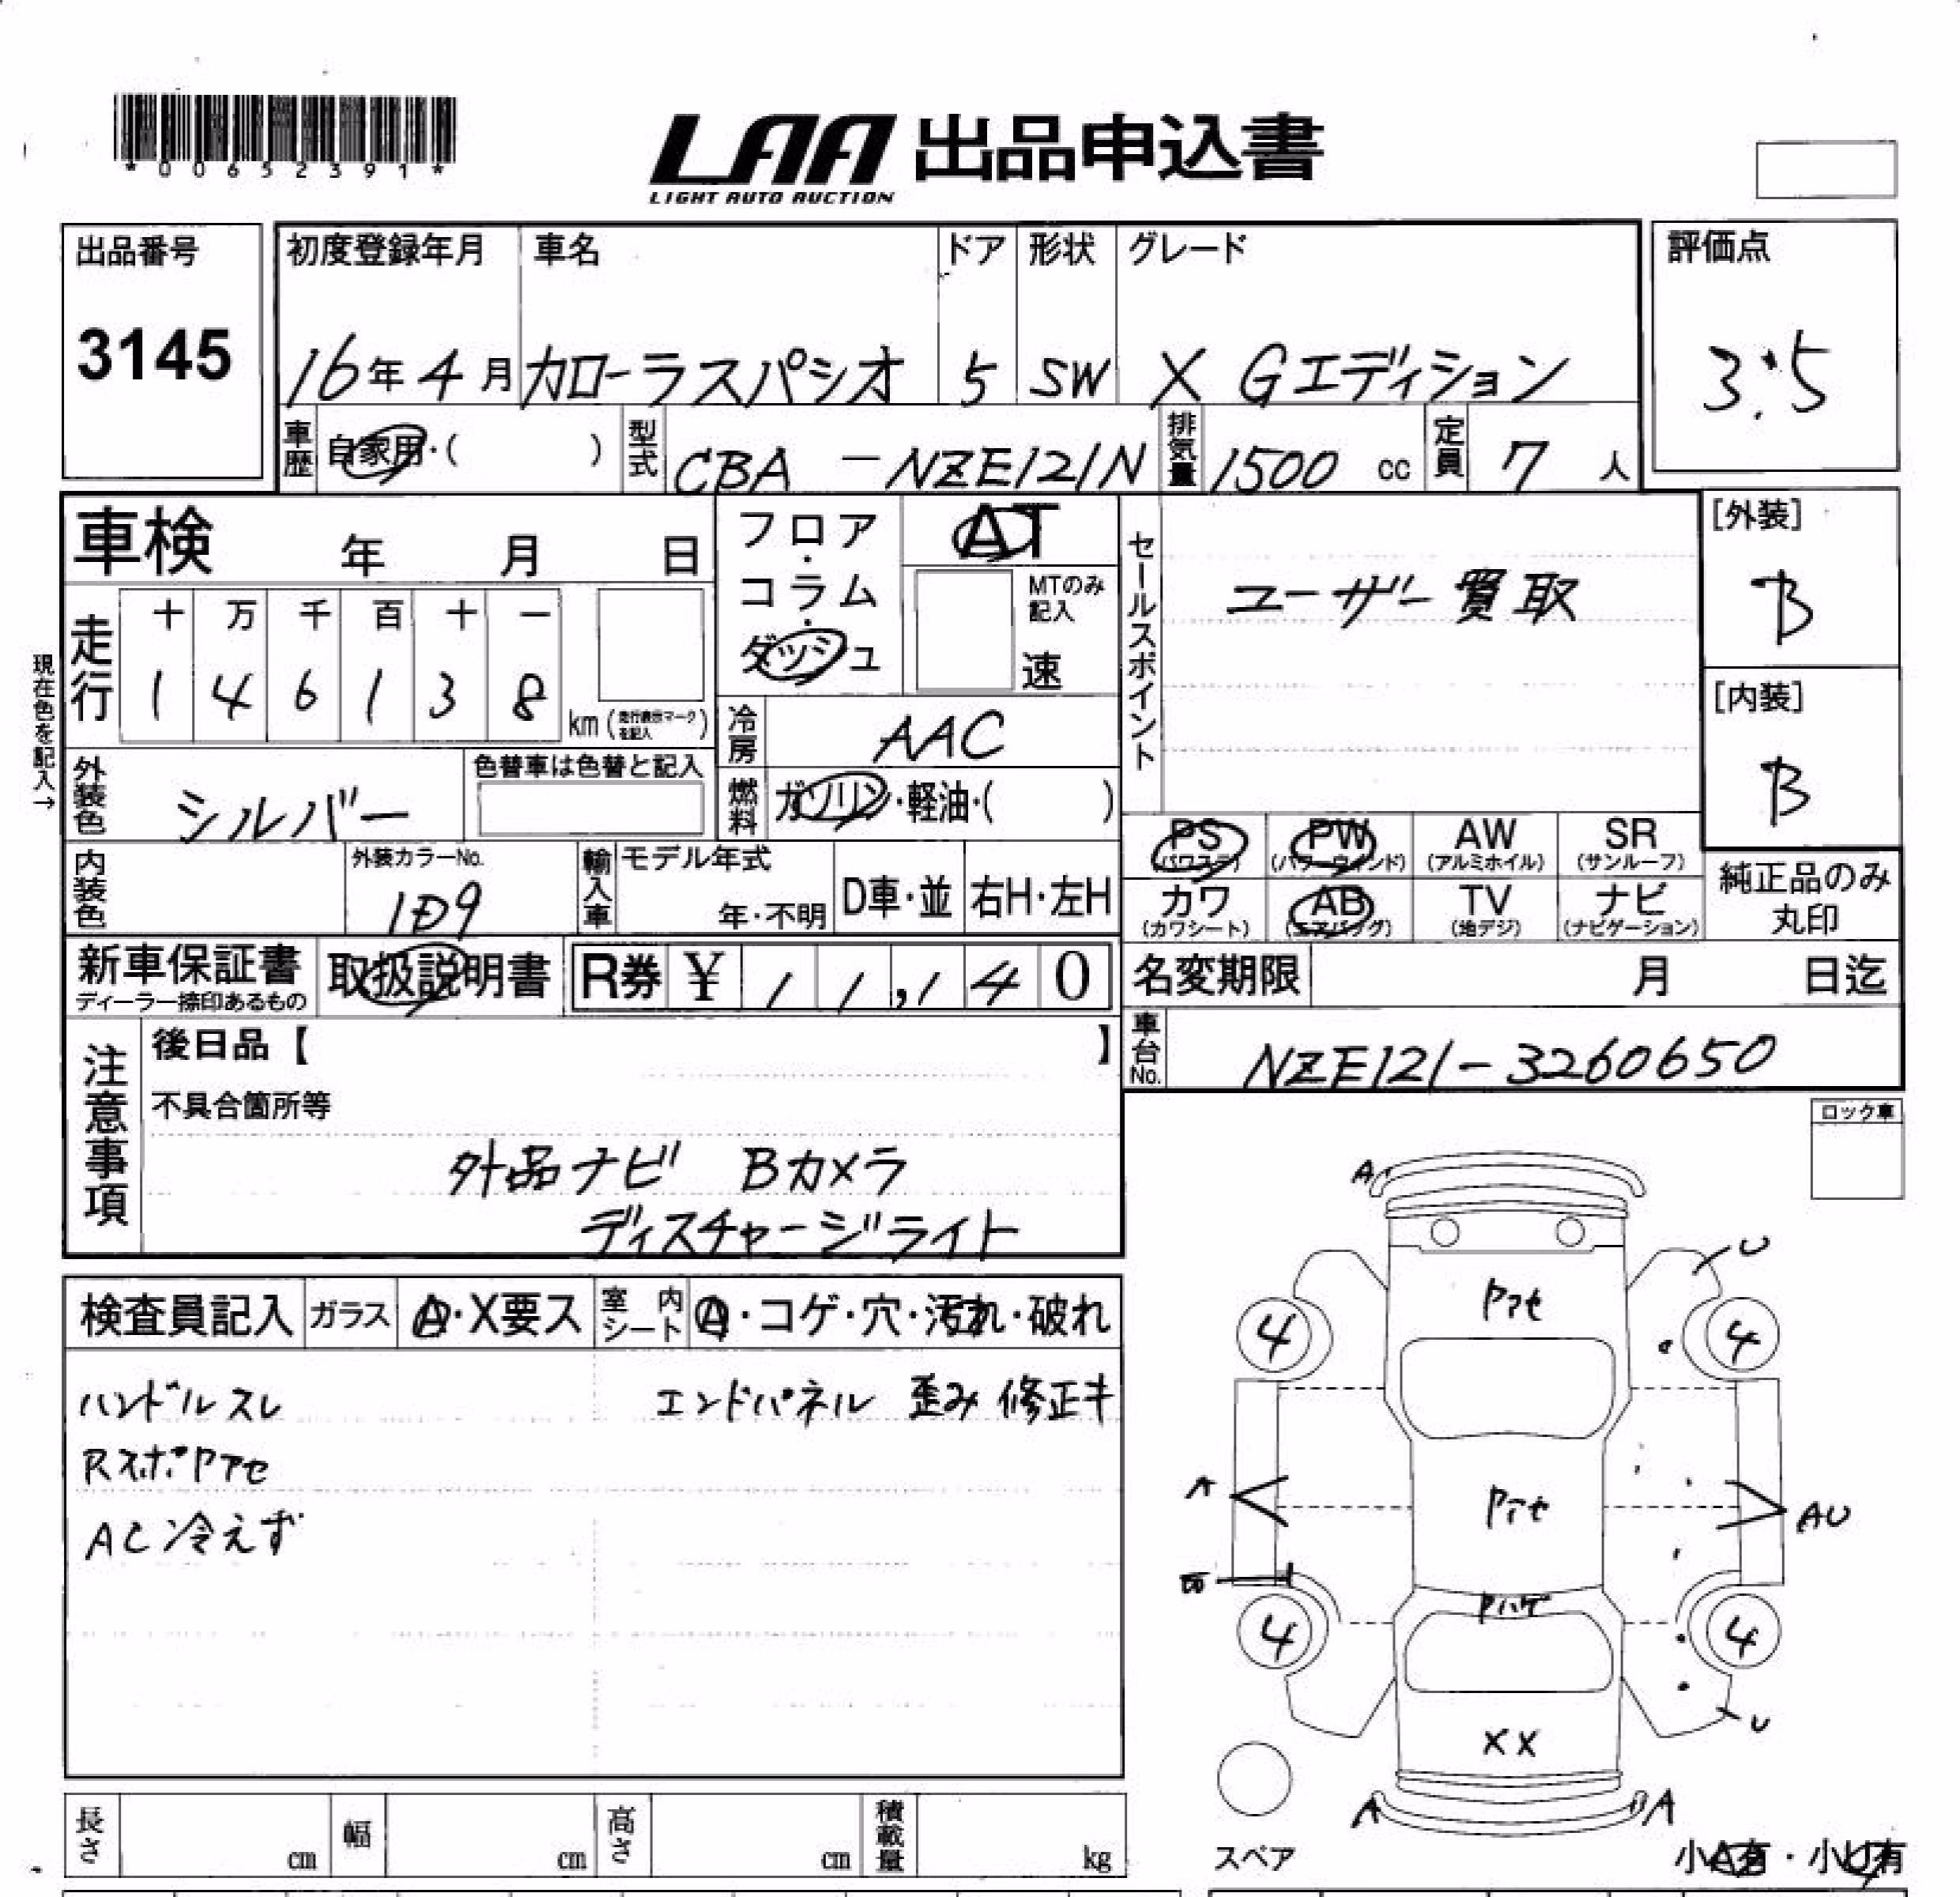 *00652391*
LAA 出品申込書
LIGHT AUTO AUCTION
出品番号
3145
初度登録年月 車名 ドア 形状 グレード
16年4月 カローラスパシオ 5 SW X Gエディション
評価点
3.5
車歴 自家用・( ) 型式 CBA -NZE121N 排気量 1500 cc 定員 7 人
車検 年 月 日
フロア・コラム・ダッシュ
AT
MTのみ記入
速
セールスポイント
ユーザー買取
[外装]
B
[内装]
B
現在色を記入→
走行
十 万 千 百 十 一
1 4 6 1 3 8 km (走行表示マークを記入)
冷房 AAC
外装色 シルバー
色替車は色替と記入
燃料 ガソリン・軽油・( )
PS (パワステ) PW (パワーウィンド) AW (アルミホイル) SR (サンルーフ)
内装色
外装カラーNo.
1D9
輸入車 モデル年式 年・不明 D車・並 右H・左H
カワ (カワシート) AB (エアバッグ) TV (地デジ) ナビ (ナビゲーション)
純正品のみ丸印
新車保証書
ディーラー捺印あるもの
取扱説明書
R券 ¥ 1 1,1 4 0
名変期限 月 日迄
注意事項
後日品【 】
車台No. NZE121-3260650
不具合箇所等
外品ナビ Bカメラ
ディスチャージライト
ロック車
検査員記入 ガラス A・X要ス 室内シート A・コゲ・穴・汚れ・破れ
ハンドルスレ エンドパネル 歪み 修正キ
Rスポ Pアセ
AC冷えず
A
U
Pアセ
4 4
A Pアセ AU
Pハゲ
4 4
U
XX
A A
スペア
小A有・小U有
長さ cm 幅 cm 高さ cm 積載量 kg